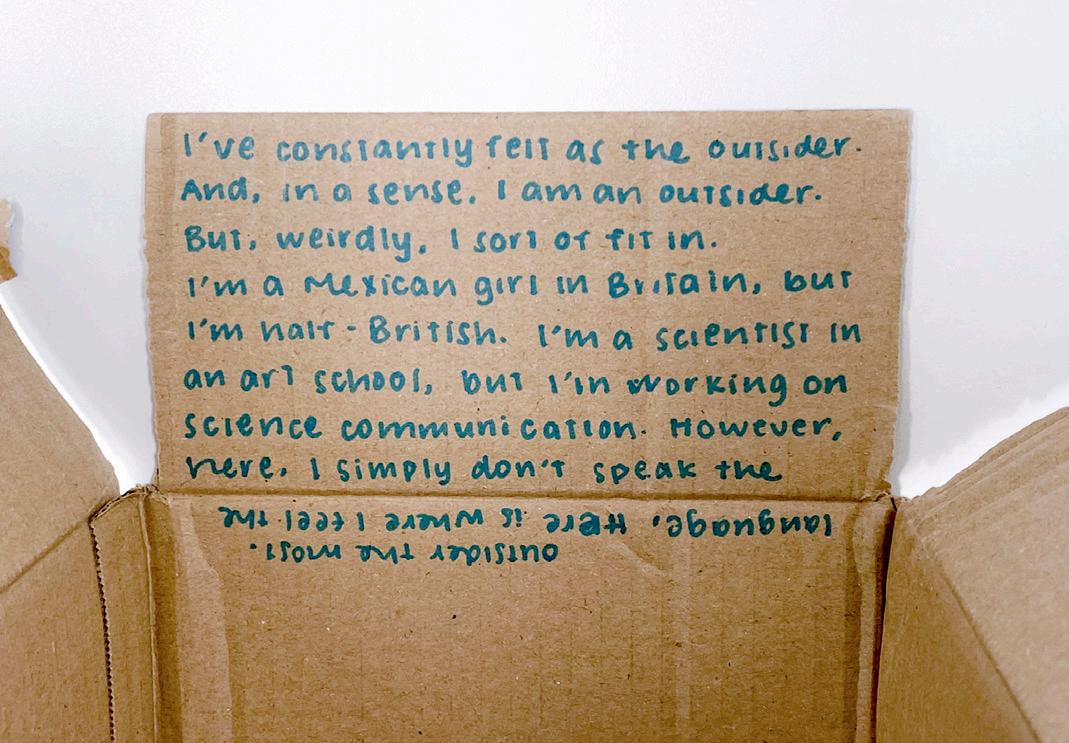 I've constantly felt as the outsider.
And, in a sense, I am an outsider.
But, weirdly, I sort of fit in.
I'm a Mexican girl in Britain, but
I'm half-British. I'm a scientist in
an art school, but I'm working on
science communication. However,
here, I simply don't speak the
language. Here is where I feel the
outsider the most.